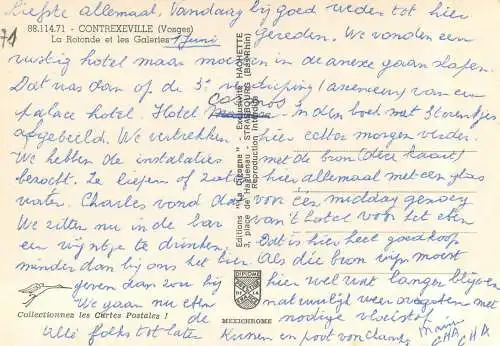 Liefste allemaal, Vandaag bij goed weder tot hier
88.114.71 - CONTREXEVILLE (Vosges)
La Rotonde et les Galeries
1 Juni
gereden. We vonden een
rustig hotel maar moeten in de annexe gaan slapen.
Dat was dan op de 5e verdieping (ascenseur) van een
palace hotel. Hotel Cosmos in den boek met 3 torentjes
afgebeeld. We vertrekken hier echter morgen verder.
We hebben de installaties met de bron (dier haait)
bezocht. Ze liepen of zaten hier allemaal met een glas
water. Charles vond dat voor een middag genoeg
We zitten nu in de bar van 't hotel voor het eten
een wijntje te drinken, Dat is hier heel goedkoop
minder dan bij ons het bier. Als die bron wijn moest
geven dan zou hij hier wel wat langer blijven
We gaan nu eten natuurlijk weer overgoten met
de nodige vloeistof.
Alle folks tot later Kussen en poot van
Mam
CHA
CHA
Editions "La Cigogne" - Exclusivité HACHETTE
3, place de Haguenau - STRASBOURG (Bas-Rhin)
Reproduction interdite
DIPLOME
Collectionnez les Cartes Postales !
MEXICHROME